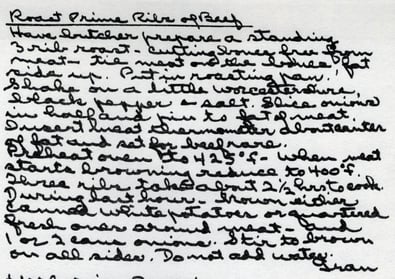 Roast Prime Ribs of Beef
Have butcher prepare a standing
3 rib roast - cutting bones free from
meat - tie meat on the bones fat
side up. Put in roasting pan.
Shake on a little worcestershire,
black pepper & salt. Slice onions
in half and pin to fat of meat.
Insert meat thermometer about center
of fat and set for beef rare.
Preheat oven to 425°F - when meat
starts browning reduce to 400°F.
Three ribs takes about 2 1/2 hrs to cook.
During last hour - brown either
canned white potatoes or quartered
fresh ones around meat - and
1 or 2 cans onions. Stir to brown
on all sides. Do not add water.